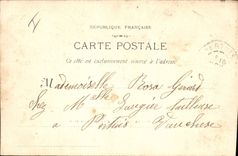 RÉPUBLIQUE FRANÇAISE
CARTE POSTALE
Ce côté est exclusivement réservé à l'adresse
Mademoiselle Rosa Girard
chez Mlle
à Pertuis Vaucluse